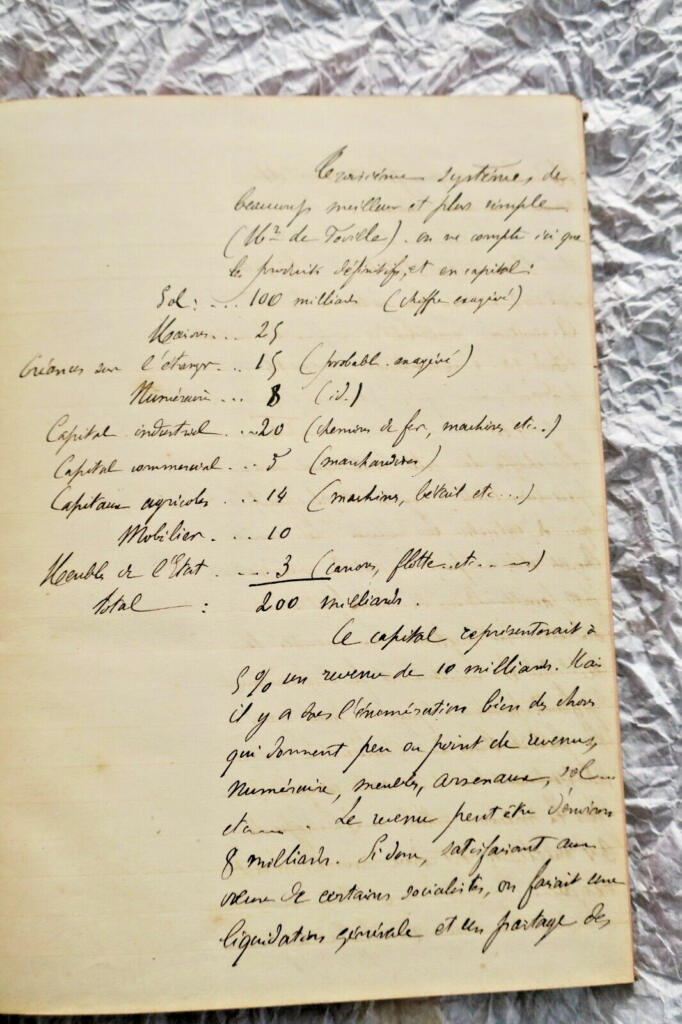 Troisième système, de
beaucoup meilleur et plus simple
(Mr de Foville). on ne compte ici que
les produits définitifs, et en capital :
Sol : ... 100 milliards (chiffre exagéré)
Maisons... 25
Créances sur l'étranger... 15 (probabl. exagéré)
Numéraire ... 8 (id.)
Capital industriel ... 20 (chemins de fer, machines etc...)
Capital commercial ... 5 (marchandises)
Capitaux agricoles ... 14 (machines, bétail etc...)
Mobilier... 10
Meubles de l'Etat .... 3 (canons, flotte..etc.....)
Total : 200 milliards.
Ce capital représenterait à
5 % un revenu de 10 milliards. Mais
il y a dans l'énumération bien des choses
qui donnent peu ou point de revenus,
numéraire, meubles, arsenaux, sol...
etc.... Le revenu peut être d'environ
8 milliards. Si donc, satisfaisant aux
vœux de certains socialistes, on faisait une
liquidation générale et un partage des